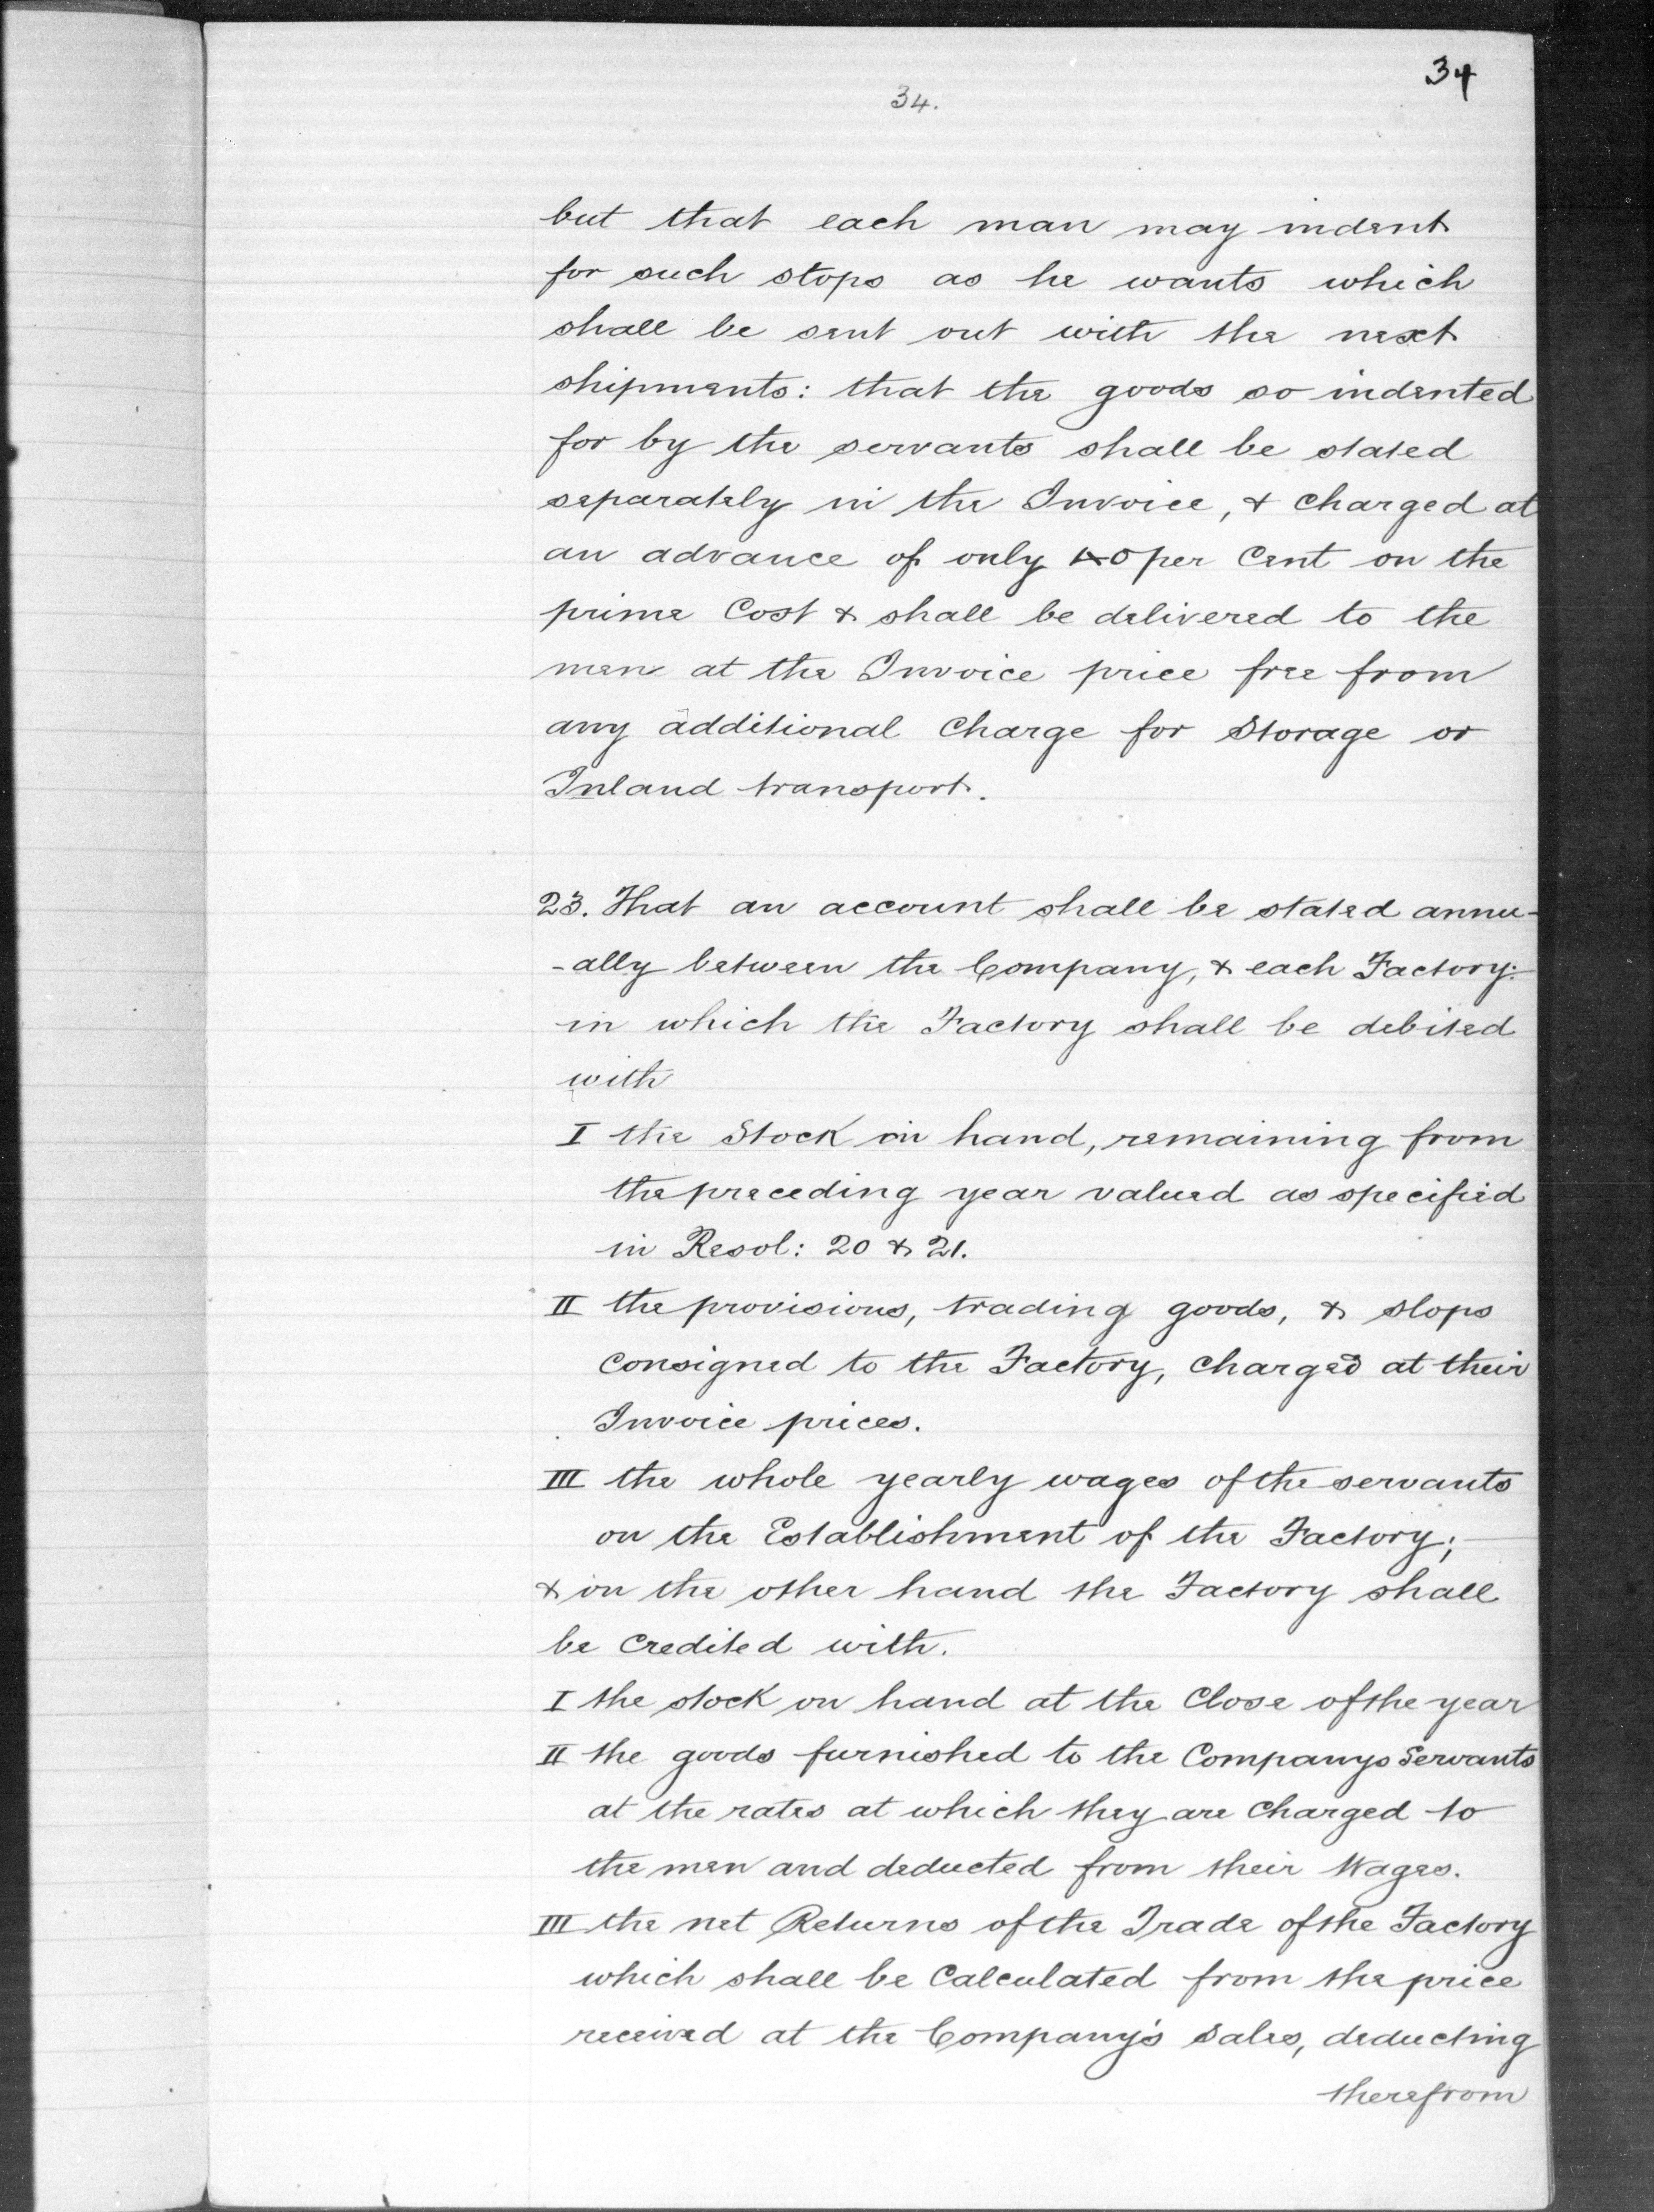 34
34.
but that each man may indent
for such stops as he wants which
shall be sent out with the next
shipments: that the goods so indented
for by the servants shall be stated
separately in the Invoice, & charged at
an advance of only per Cent on the
prime Cost & shall be delivered to the
men at the Invoice price free from
any additional Charge for Storage or
Inland transport.
23. That an account shall be stated annu-
-ally between the Company, & each Factory:
in which the Factory shall be debited
with
I the Stock on hand, remaining from
the preceding year valued as specified
in Resol: 20 & 21.
II the provisions, trading goods, & slops
Consigned to the Factory, Charged at their
Invoice prices.
III the whole yearly wages of the servants
on the Establishment of the Factory;
& on the other hand the Factory shall
be Credited with.
I the stock on hand at the Close of the year
II the goods furnished to the Companys Servants
at the rates at which they are Charged to
the men and deducted from their Wages.
III the net Returns of the Trade of the Factory
which shall be Calculated from the price
received at the Company's Sales, deducting
therefrom